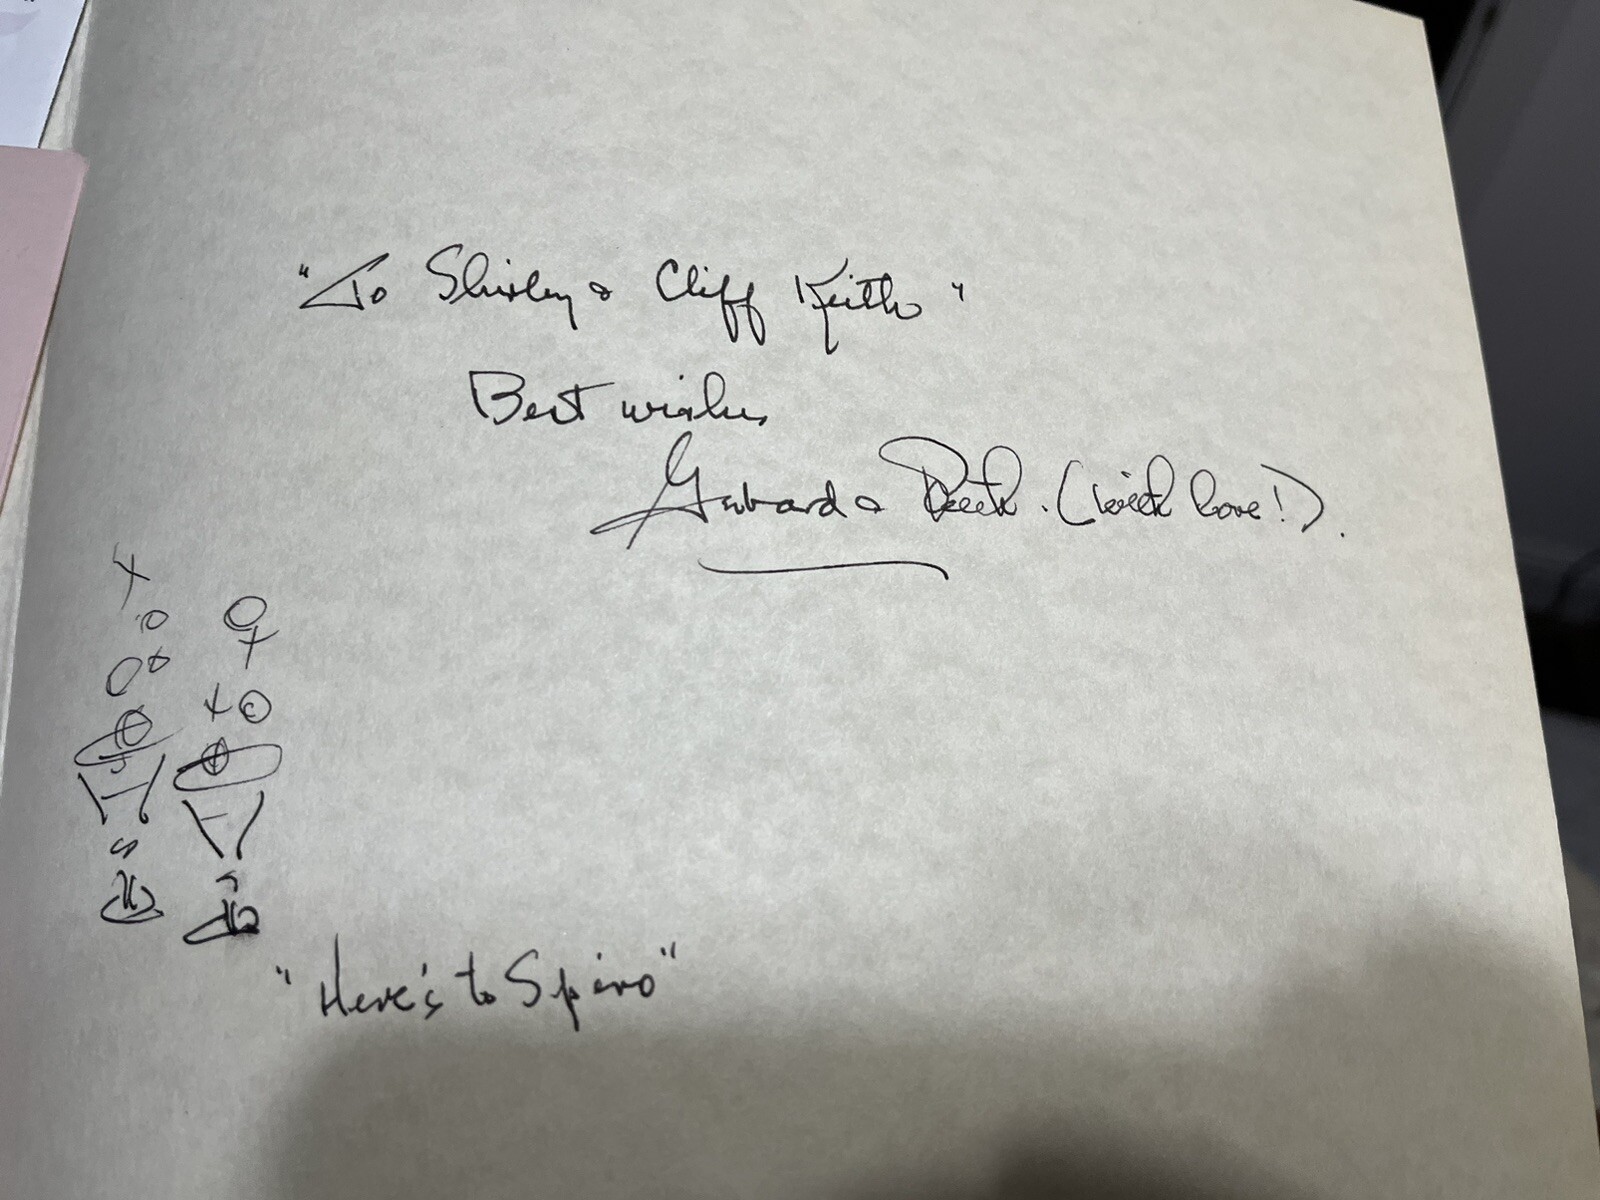 "To Shirley & Cliff Keith"
Best wishes
& Ruth. (with love!).
"Here's to Spiro"